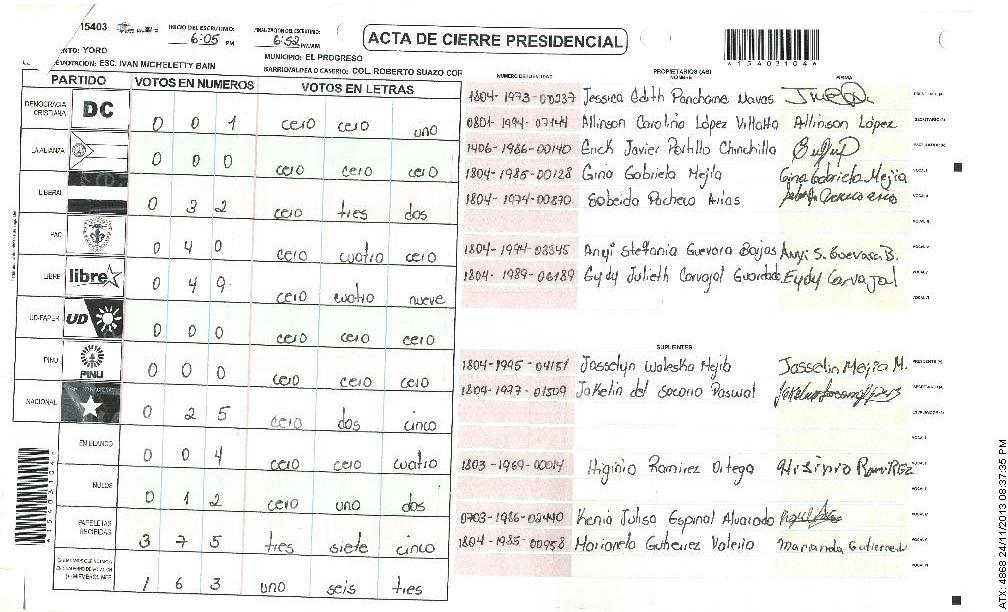 15403 INICIO DEL ESCRUTINIO: 6:05 PM FINALIZACION DEL ESCRUTINIO: 6:52 PM/AM
ACTA DE CIERRE PRESIDENCIAL
*154031046*
NTO: YORO MUNICIPIO: EL PROGRESO
VOTACION: ESC. IVAN MICHELETTY BAIN BARRIO/ALDEA O CASERIO: COL. ROBERTO SUAZO COR
PARTIDO VOTOS EN NUMEROS VOTOS EN LETRAS
NUMERO DE IDENTIDAD PROPIETARIOS (AS) NOMBRE FIRMA
DEMOCRACIA CRISTIANA DC 0 0 1 cero cero uno
LA ALIANZA 0 0 0 cero cero cero
LIBERAL 0 3 2 cero tres dos
PAC 0 4 0 cero cuatro cero
LIBRE libre 0 4 9 cero cuatro nueve
UD-FAPER UD 0 0 0 cero cero cero
PINU PINU 0 0 0 cero cero cero
NACIONAL 0 2 5 cero dos cinco
EN BLANCO 0 0 4 cero cero cuatro
NULOS 0 1 2 cero uno dos
PAPELETAS RECIBIDAS 3 7 5 tres siete cinco
1 6 3 uno seis tres
1804-1973-00237 Jessica Edith Panchame Navas
0801-1994-07144 Allinson Carolina López Villatta Allinson López
1406-1986-00140 Erick Javier Portillo Chinchilla
1804-1985-00128 Gina Gabriela Mejía Gina Gabriela Mejia
1804-1974-00870 Sobeida Pacheco Arias
1804-1994-02345 Anyi Stefania Guevara Barjas Anyi S. Guevara B.
1804-1989-06189 Eydy Julieth Carvajal Guardado Eydy Carvajal
SUPLENTES
1804-1995-04151 Josselyn Waleska Mejia Josselin Mejia M.
1804-1977-01509 Jakelin del Socorro Pascual
1803-1969-00014 Higinio Ramirez Ortega Higinio RamiREZ
0703-1986-02440 Kenia Julisa Espinal Alvarado
1804-1985-00958 Marianela Gutierrez Valerio
ATX: 4868 24/11/2013 08:37:35 PM